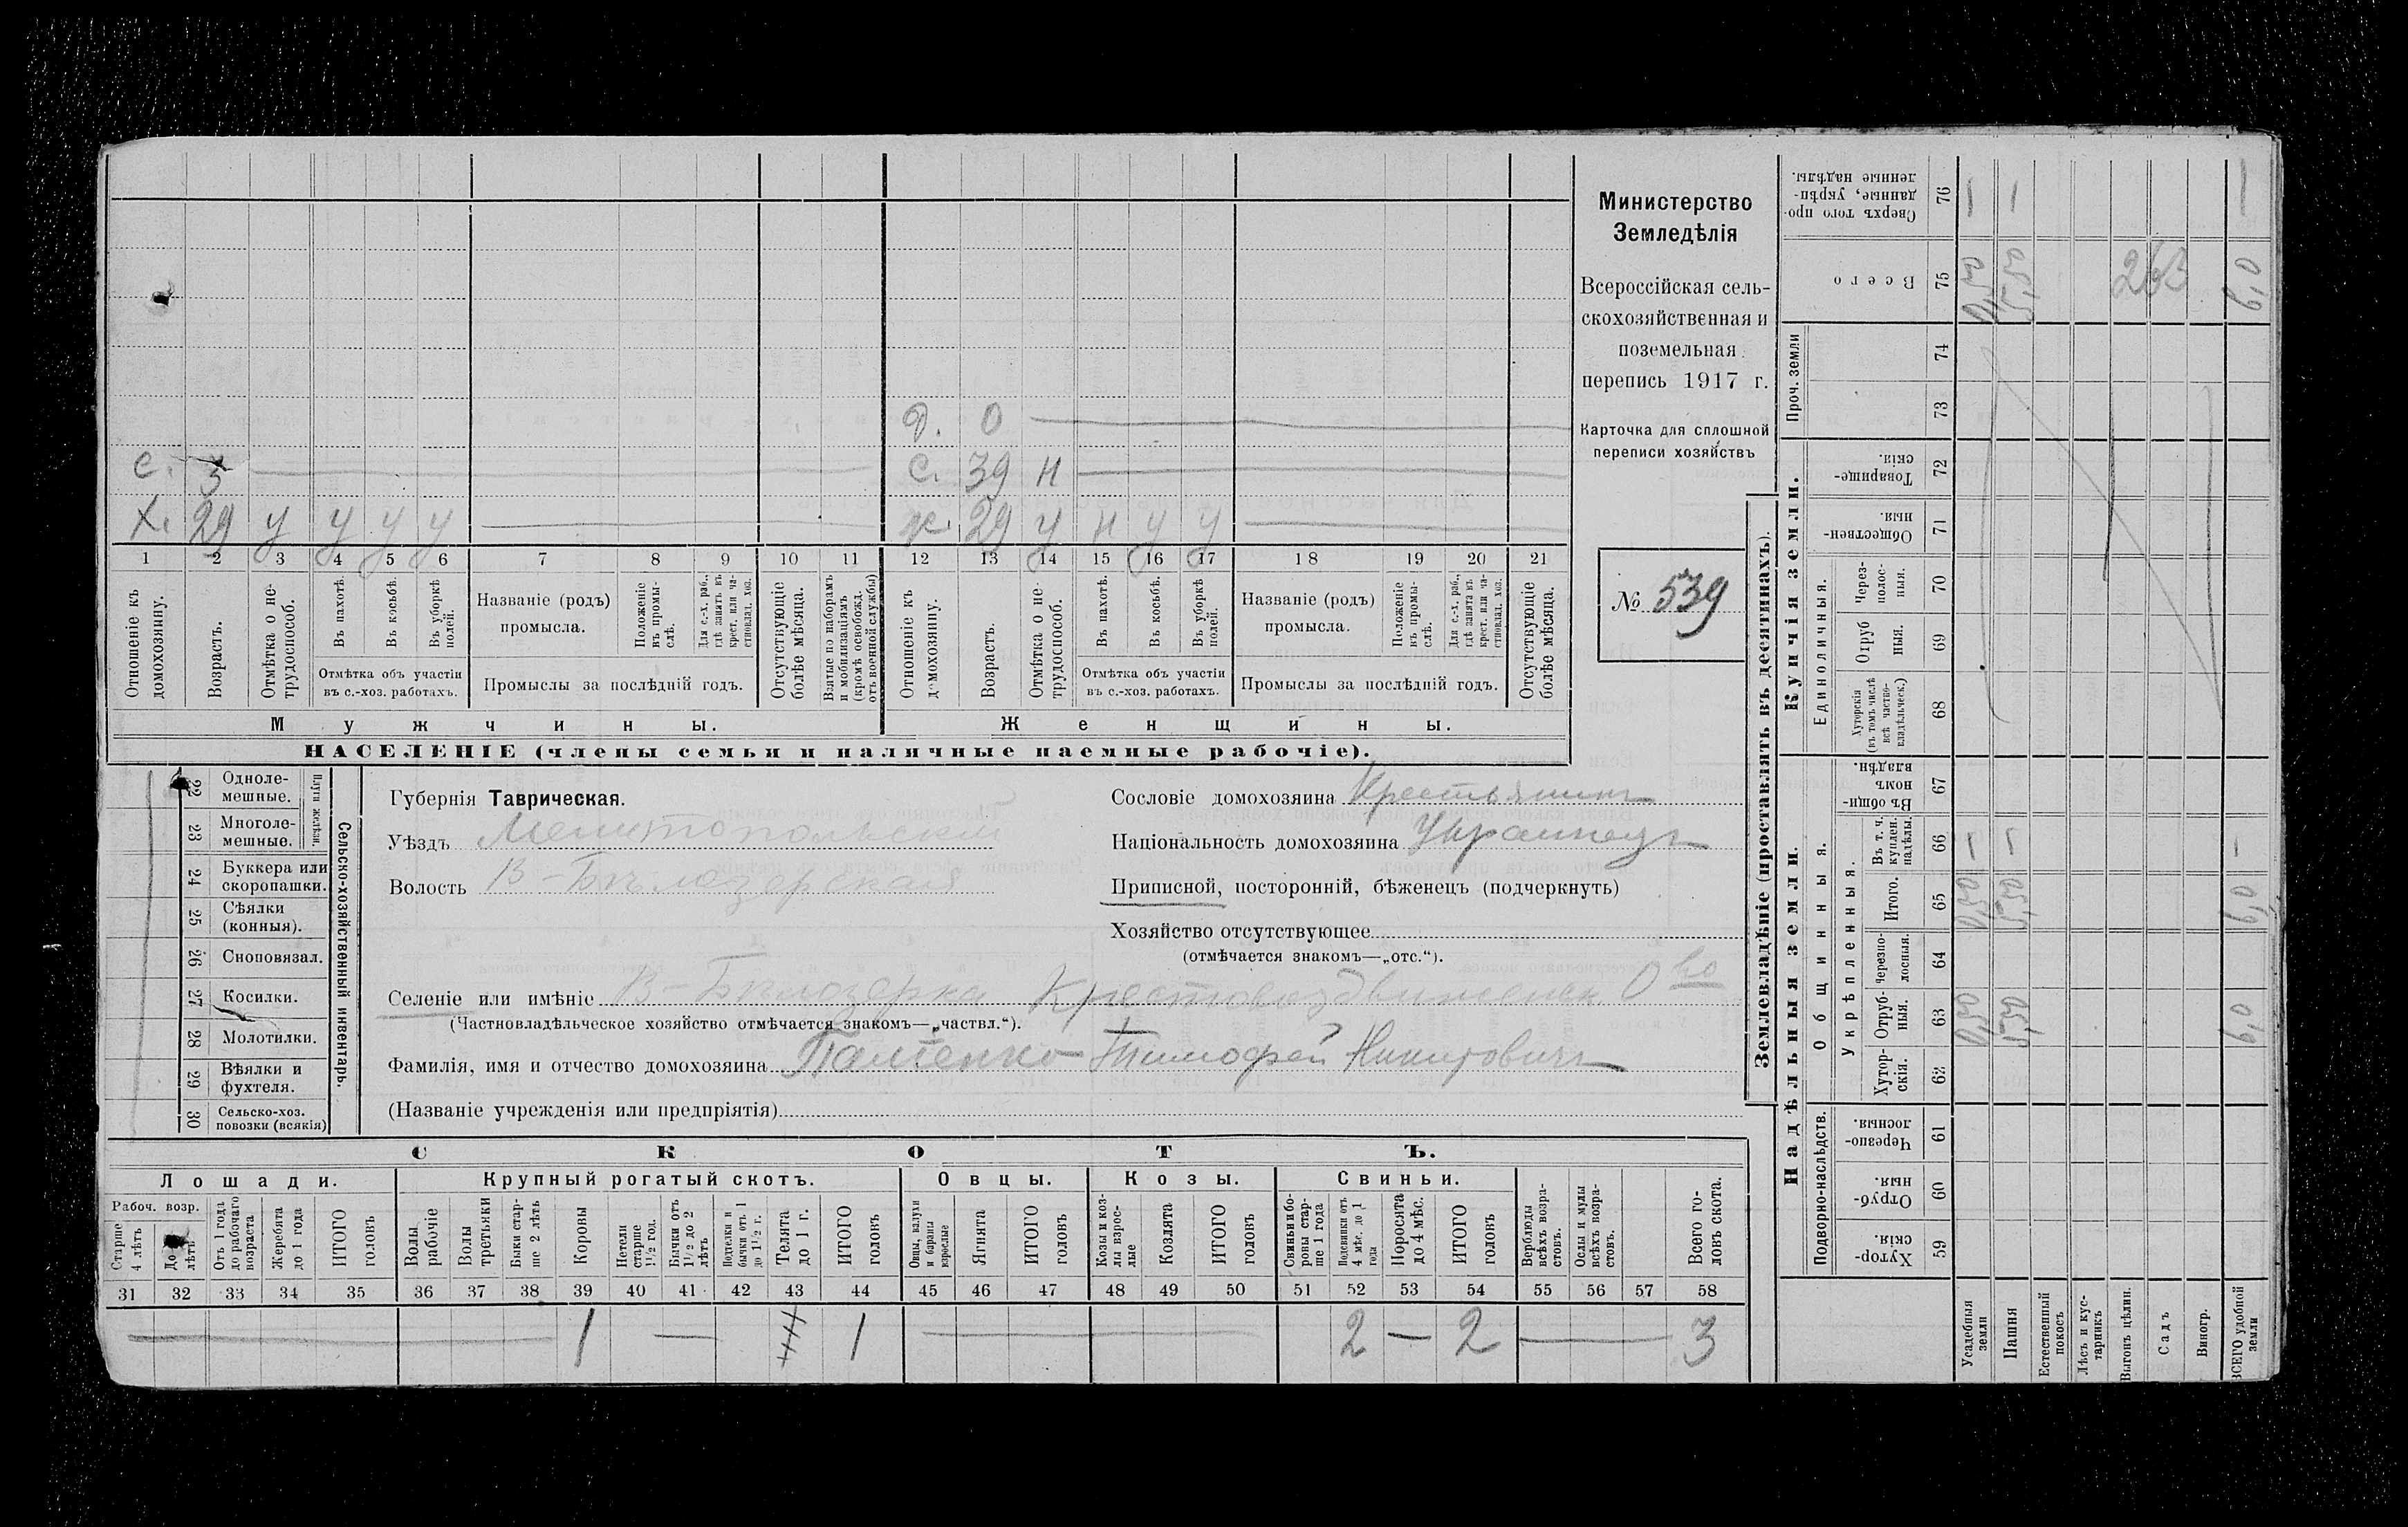 Министерство
Земледѣлія
Всероссійская сель-
скохозяйственная и
поземельная
перепись 1917 г.
Карточка для сплошной
переписи хозяйствъ
№ 539
д. 0
с. 3
с. 39 н
х. 29 у у у у
ж. 29 у н у у
1 2 3 4 5 6 7 8 9 10 11 12 13 14 15 16 17 18 19 20 21
Отношеніе къ домохозяину.
Возрастъ.
Отмѣтка о не-трудоспособ.
Въ пахотѣ.
Въ косьбѣ.
Въ уборкѣ полей.
Отмѣтка объ участіи
въ с.-хоз. работахъ.
Названіе (родъ)
промысла.
Положеніе въ промы-слѣ.
Для с.-х. раб., гдѣ занятъ въ крест. или ча-стновлад. хоз.
Промыслы за послѣдній годъ.
Отсутствующіе болѣе мѣсяца.
Взятые по наборамъ и мобилизаціямъ (кромѣ освобожд. отъ военной службы)
Отношеніе къ домохозяину.
Возрастъ.
Отмѣтка о не-трудоспособ.
Въ пахотѣ.
Въ косьбѣ.
Въ уборкѣ полей.
Отмѣтка объ участіи
въ с.-хоз. работахъ.
Названіе (родъ)
промысла.
Положеніе въ промы-слѣ.
Для с.-х. раб., гдѣ занята въ крест. или ча-стновлад. хоз.
Промыслы за послѣдній годъ.
Отсутствующіе болѣе мѣсяца.
Мужчины.
Женщины.
НАСЕЛЕНІЕ (члены семьи и наличные наемные рабочіе).
Сельско-хозяйственный инвентарь.
Плуги желѣзн.
22 Одноле-мешные.
23 Многоле-мешные.
24 Буккера или скоропашки.
25 Сѣялки (конныя).
26 Сноповязал.
27 Косилки.
28 Молотилки.
29 Вѣялки и фухтеля.
30 Сельско-хоз. повозки (всякія)
Губернія Таврическая.
Уѣздъ Мелитопольскій
Волость В-Бѣлозерская
Сословіе домохозяина Крестьянинъ
Національность домохозяина Украинецъ
Приписной, посторонній, бѣженецъ (подчеркнуть)
Хозяйство отсутствующее
(отмѣчается знакомъ—„отс.“).
Селеніе или имѣніе В-Бѣлозерка Крестовоздвиженск О во
(Частновладѣльческое хозяйство отмѣчается знакомъ—„частвл.“).
Фамилія, имя и отчество домохозяина Тимофей Никитовичъ
(Названіе учрежденія или предпріятія)
СКОТЪ.
Лошади.
Крупный рогатый скотъ.
Овцы.
Козы.
Свиньи.
Рабоч. возр.
Старше 4 лѣтъ
До лѣтъ
Отъ 1 года до рабочаго возраста
Жеребята до 1 года
ИТОГО головъ
Волы рабочіе
Волы третьяки
Быки стар-ше 2 лѣтъ
Коровы
Нетели старше 1½ год.
Бычки отъ 1½ до 2 лѣтъ
Подтелки и бычки отъ 1 до 1½ г.
Телята до 1 г.
ИТОГО головъ
Овцы, валухи и бараны взрослые
Ягнята
ИТОГО головъ
Козы и коз-лы взрос-лые
Козлята
ИТОГО головъ
Свиньи и бо-ровы стар-ше 1 года
Подсвинки отъ 4 мѣс. до 1 года
Поросята до 4 мѣс.
ИТОГО головъ
Верблюды всѣхъ возра-стовъ.
Ослы и мулы всѣхъ возра-стовъ.
Всего го-ловъ скота.
31 32 33 34 35 36 37 38 39 40 41 42 43 44 45 46 47 48 49 50 51 52 53 54 55 56 57 58
1 — 1 2 — 2 — 3
Землевладѣніе (проставлять въ десятинахъ).
Надѣльныя земли.
Купчія земли.
Проч. земли
Подворно-наслѣдств.
Общинныя.
Укрѣпленныя.
Единоличныя.
59 Хутор-скія.
60 Отруб-ныя.
61 Черезпо-лосныя.
62 Хутор-скія.
63 Отруб-ныя. 0,50 5,50 6,0
64 Черезпо-лосныя.
65 Итого. 0,50 5,50 6,0
66 Въ т. ч. куплен. надѣлы. — — —
67 Въ общин-номъ владѣн.
68 Хуторскія (въ томъ числѣ всѣ частно-владѣльческ.)
69 Отруб ныя.
70 Через-полос-ныя.
71 Обществен-ныя.
72 Товарище-скія.
73
74
75 Всего 0,50 5,50 263 6,0
76 Сверхъ того про-данные, укрѣп-ленные надѣлы. — — —
Усадебныя земли
Пашня
Естественный покосъ
Лѣсъ и кус-тарникъ
Выгонъ цѣлин.
Садъ
Виногр.
ВСЕГО удобной земли